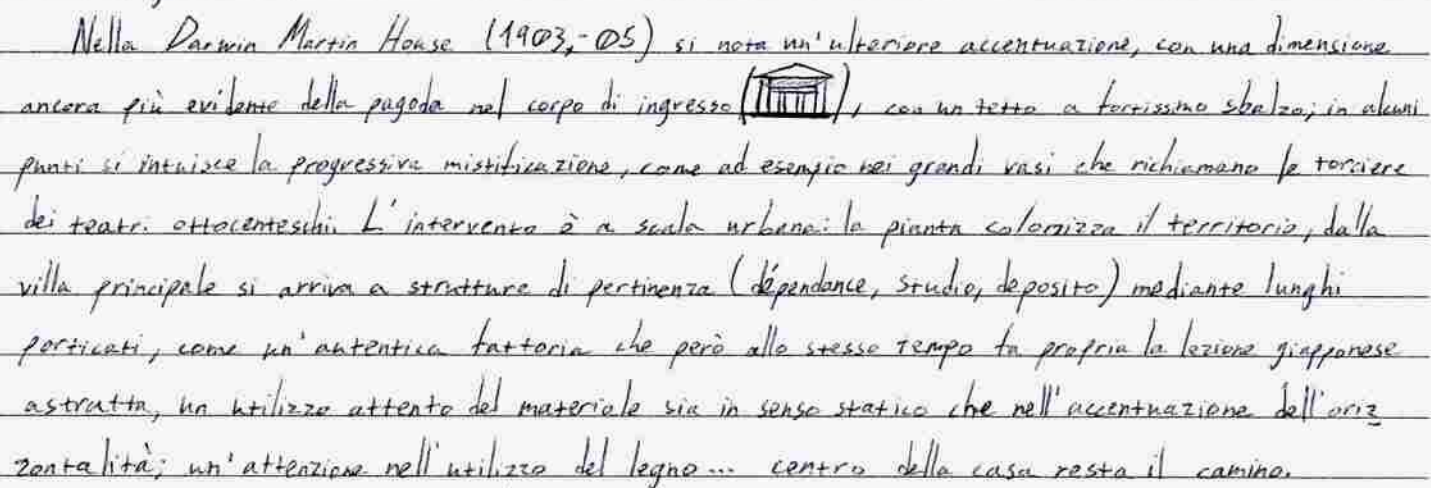 Nella Darwin Martin House (1903,-05) si nota un'ulteriore accentuazione, con una dimensione
ancora più evidente della pagoda nel corpo di ingresso ( ), con un tetto a fortissimo sbalzo; in alcuni
punti si intuisce la progressiva mistificazione, come ad esempio nei grandi vasi che richiamano le torciere
dei teatri ottocenteschi. L'intervento è a scala urbana: la pianta colonizza il territorio, dalla
villa principale si arriva a strutture di pertinenza (dépendance, studio, deposito) mediante lunghi
porticati, come un'autentica fattoria che però allo stesso tempo fa propria la lezione giapponese
astratta, un utilizzo attento del materiale sia in senso statico che nell'accentuazione dell'oriz
zontalità; un'attenzione nell'utilizzo del legno... centro della casa resta il camino.